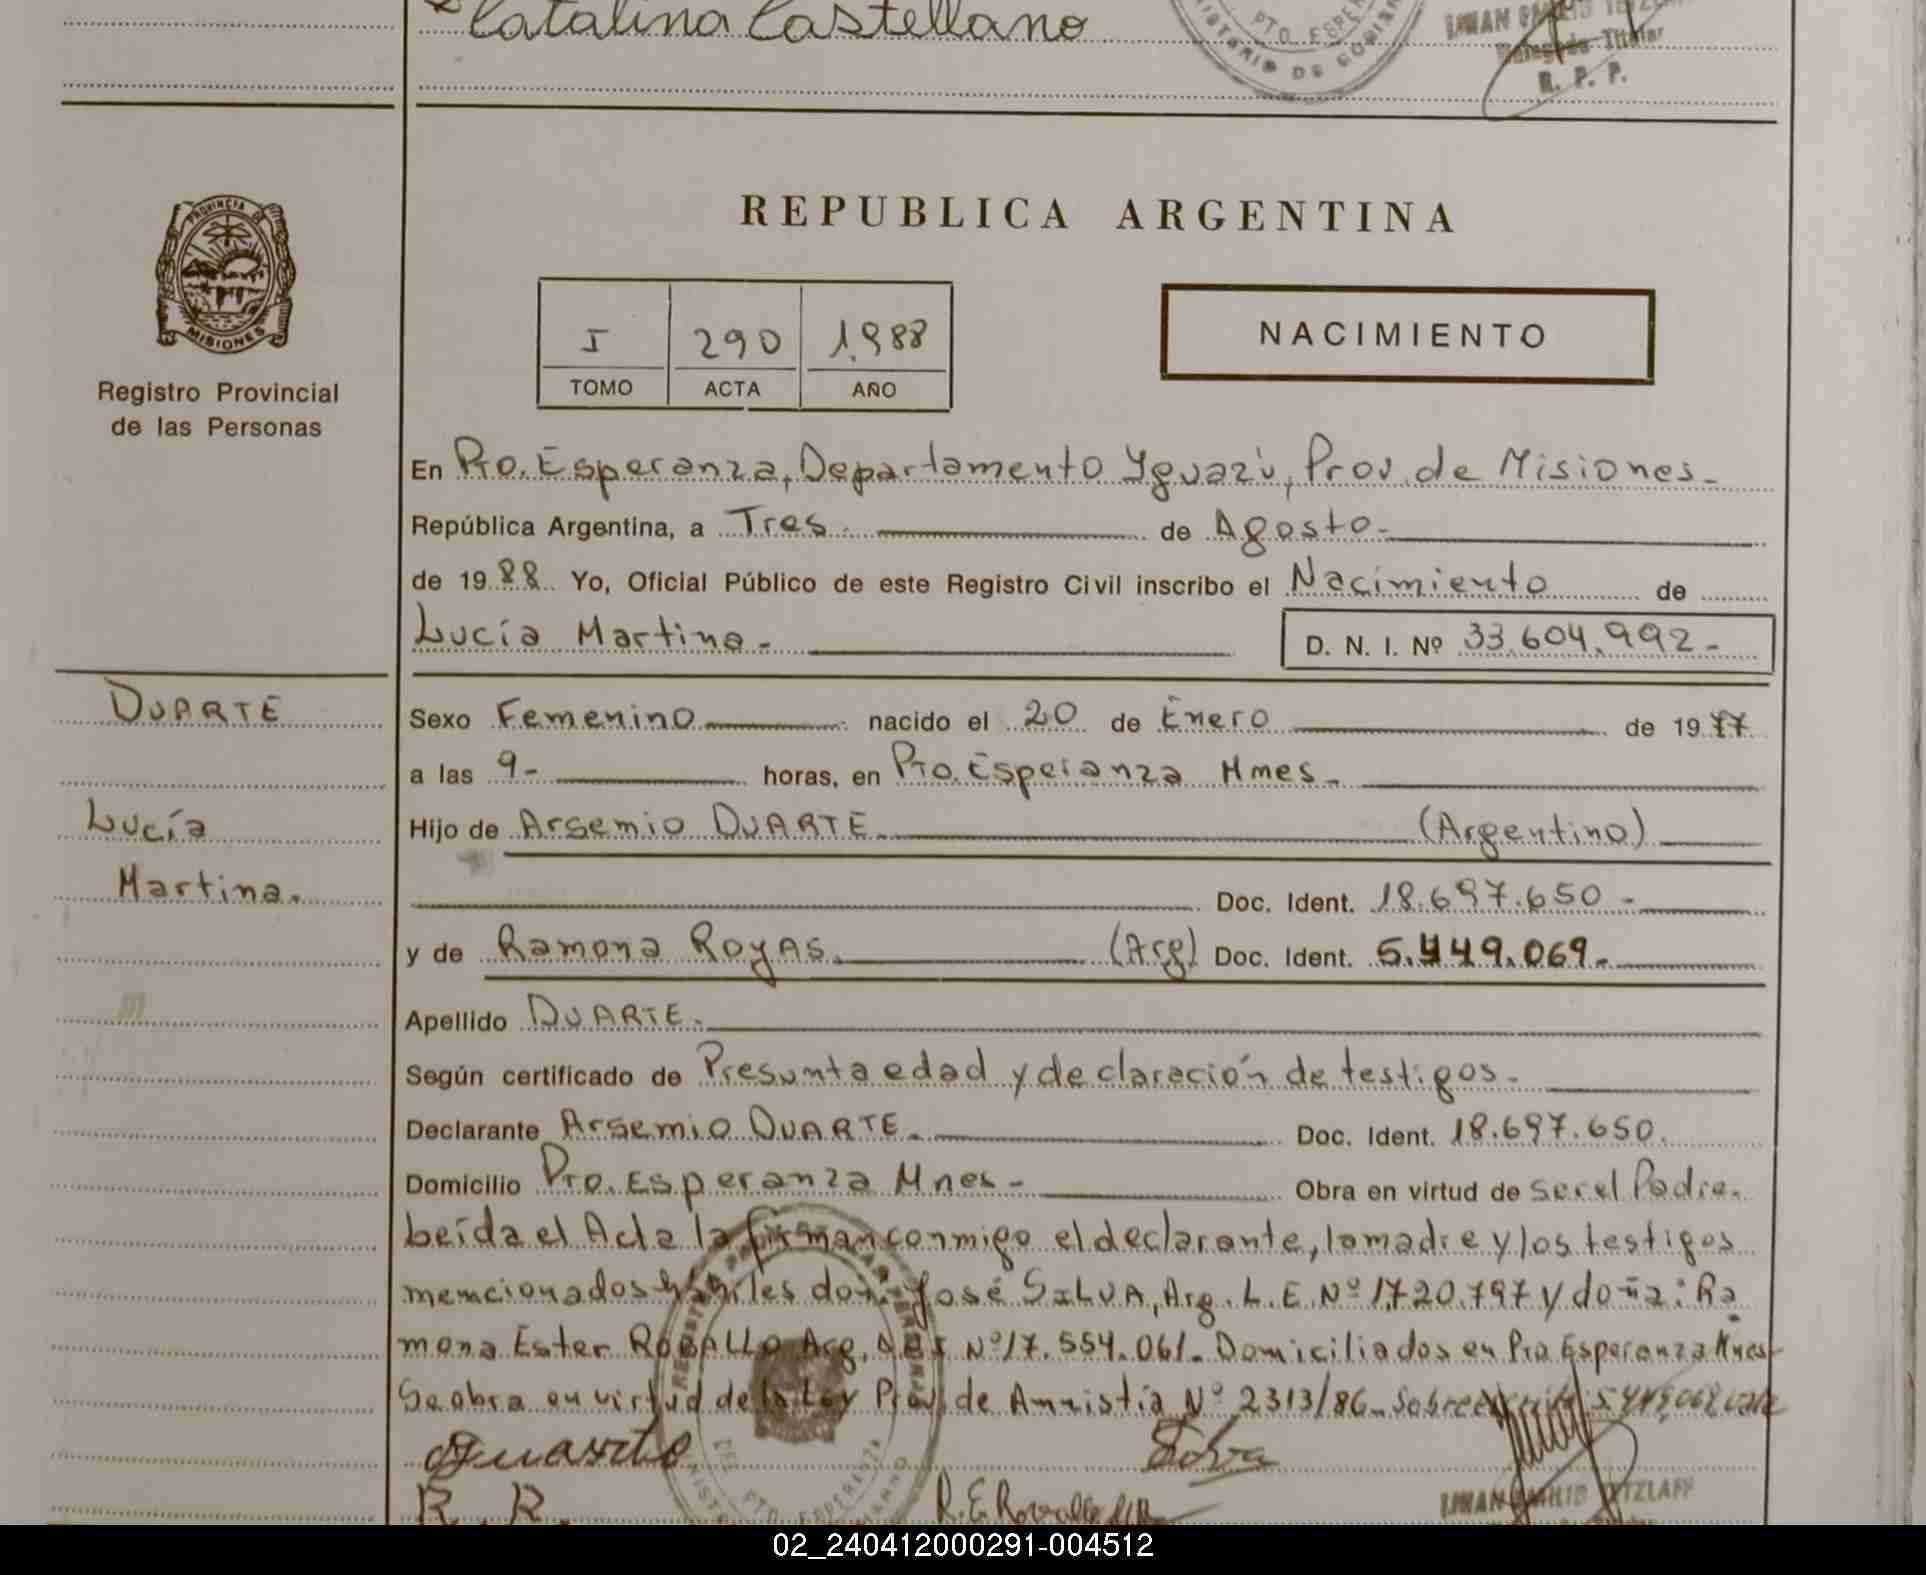 Catalina Castellano
PTO. ESPER
ISTERIO DE GOBIER
Delegado Titular
R. P. P.
PROVINCIA DE
MISIONES
Registro Provincial
de las Personas
REPUBLICA ARGENTINA
I 290 1.988
TOMO ACTA AÑO
NACIMIENTO
En Pto. Esperanza, Departamento Yguazú, Prov. de Misiones.-
República Argentina, a Tres.- de Agosto.-
de 1988. Yo, Oficial Público de este Registro Civil inscribo el Nacimiento de
Lucía Martina.-
D. N. I. Nº 33.604.992.-
DUARTE
Lucía
Martina.
Sexo Femenino nacido el 20 de Enero de 1977
a las 9- horas, en Pto. Esperanza Mnes.-
Hijo de Arsemio DUARTE.- (Argentino)
Doc. Ident. 18.697.650.-
y de Ramona ROYAS. (Arg) Doc. Ident. 5.449.069.-
Apellido DUARTE.-
Según certificado de Presunta edad y declaración de testigos.-
Declarante Arsemio DUARTE.- Doc. Ident. 18.697.650.
Domicilio Pto. Esperanza Mnes.- Obra en virtud de ser el Padre.-
Leída el Acta la firman conmigo el declarante, la madre y los testigos
mencionados hábiles don: José SILVA, Arg. L.E. Nº 1.720.797 y doña: Ra
mona Ester ROBALLO Arg. DNI Nº 17.554.061.- Domiciliados en Pto Esperanza Mnes-
Se obra en virtud de la Ley Prov. de Amnistía Nº 2313/86.- Sobreescrito: 5.449.069 vale
Duarte
Silva
R. R.
PTO. ESPERANZA
02_240412000291-004512